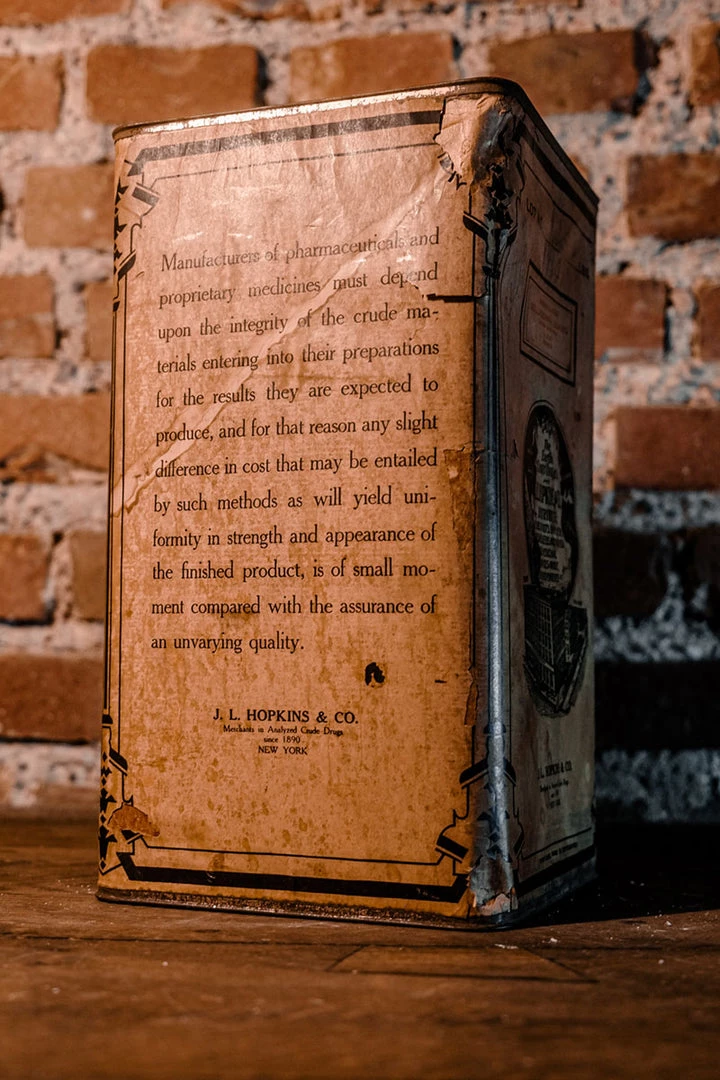 Manufacturers of pharmaceuticals and
proprietary medicines must depend
upon the integrity of the crude ma-
terials entering into their preparations
for the results they are expected to
produce, and for that reason any slight
difference in cost that may be entailed
by such methods as will yield uni-
formity in strength and appearance of
the finished product, is of small mo-
ment compared with the assurance of
an unvarying quality.
J. L. HOPKINS & CO.
Merchants in Analyzed Crude Drugs
since 1890
NEW YORK
LOT
J. L. HOPKINS & CO.